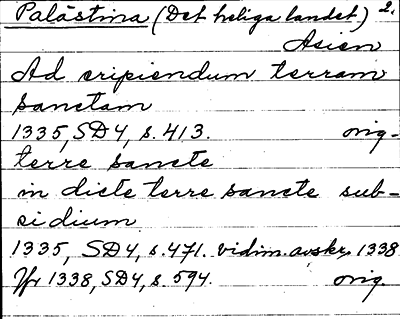 Palästina (Det heliga landet) 2.
Asien
Ad eripiendum terram
sanctam
1335, SD4, s. 413. orig.
terre sancte
in dicte terre sancte sub-
sidium
1335, SD4, s. 471. vidim. avskr. 1338
Yr 1338, SD4, s. 594. orig.